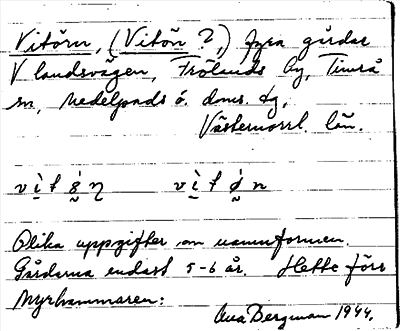 Vitörn, (Vitön?,) fyra gårdar
V landsvägen, Frölands by, Timrå
sn, Medelpads ö. doms. dg,
Västernorrl. län.
Olika uppgifter om namnformen.
Gårdarna endast 5-6 år. Hette förr
Myrhammaren:
Ava Bergman 1944.